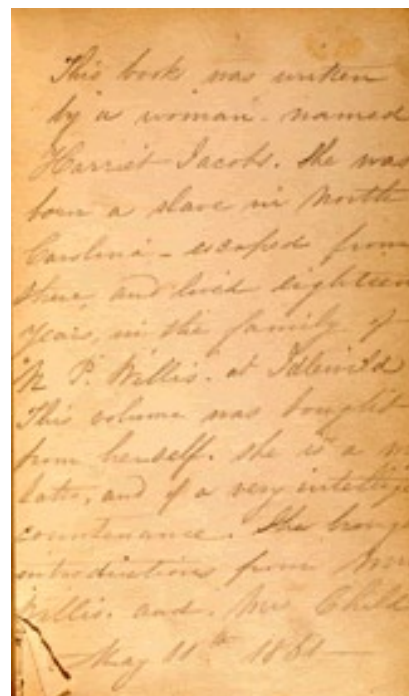 This book was written
by a woman named
Harriet Jacobs. She was
born a slave in North
Carolina - escaped from
there, and lived eighteen
years, in the family of
N. P. Willis. at Idlewild
This volume was bought
from herself. she is a m
latto, and of a very intellige
countenance. She brings
introductions from Mrs
Willis. and. Mrs Child
May 11th 1861 —